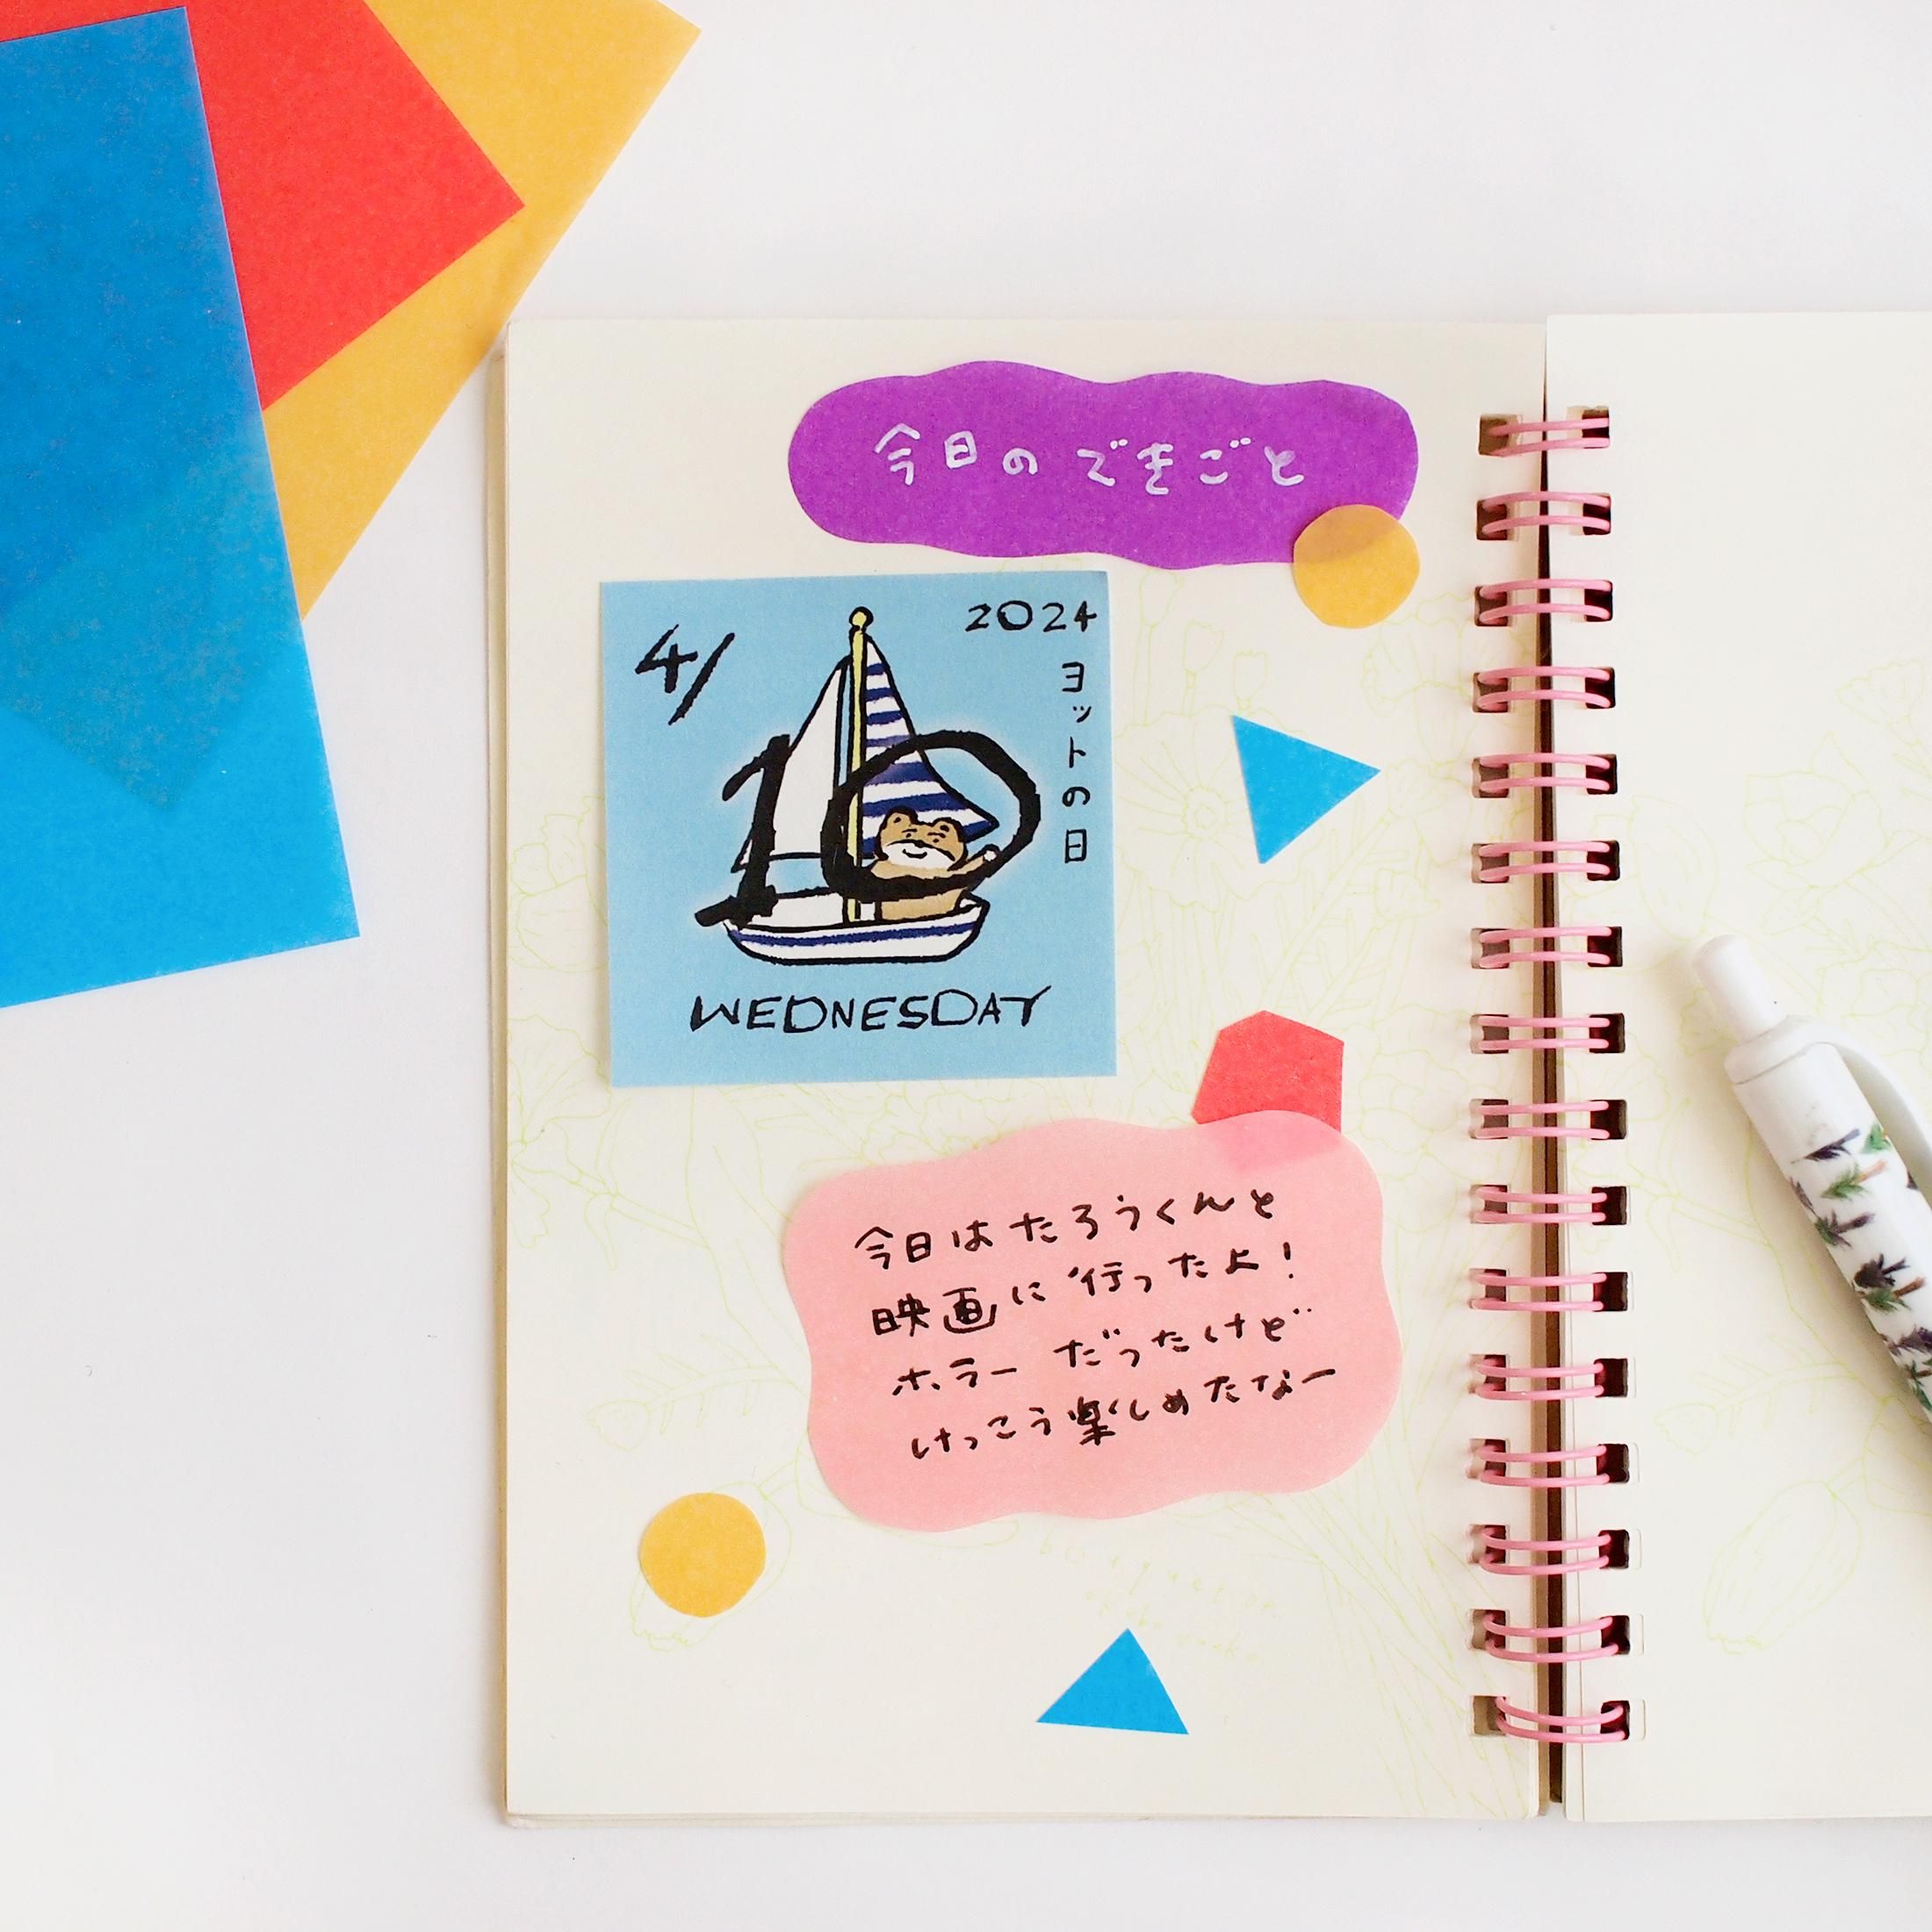 今日のできごと
2024
4/
10
ヨットの日
WEDNESDAY
今日はたろうくんと
映画に行ったよ!
ホラーだったけど
けっこう楽しめたなー